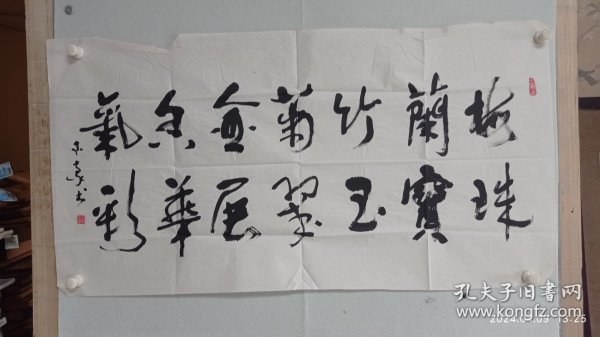 梅蘭竹菊香氣
珠寶玉翠展華彩
书
孔夫子旧书网
www.kongfz.com
13:25